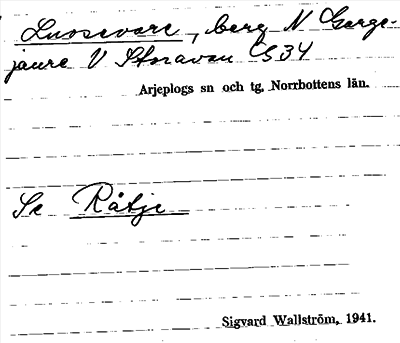 Luosevare, berg N Gerge-
jaure V Storavan C534
Arjeplogs sn och tg, Norrbottens län.
Se Råtje
Sigvard Wallström, 1941.